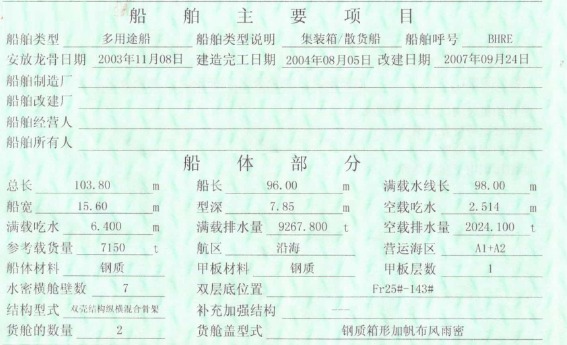 船舶主要项目
船舶类型 多用途船 船舶类型说明 集装箱/散货船 船舶呼号 BHRE
安放龙骨日期 2003年11月08日 建造完工日期 2004年08月05日 改建日期 2007年09月24日
船舶制造厂
船舶改建厂
船舶经营人
船舶所有人
船体部分
总长 103.80 m 船长 96.00 m 满载水线长 98.00 m
船宽 15.60 m 型深 7.85 m 空载吃水 2.514 m
满载吃水 6.400 m 满载排水量 9267.800 t 空载排水量 2024.100 t
参考载货量 7150 t 航区 沿海 营运海区 A1+A2
船体材料 钢质 甲板材料 钢质 甲板层数 1
水密横舱壁数 7 双层底位置 Fr25#-143#
结构型式 双壳结构纵横混合骨架 补充加强结构 ——
货舱的数量 2 货舱盖型式 钢质箱形加帆布风雨密